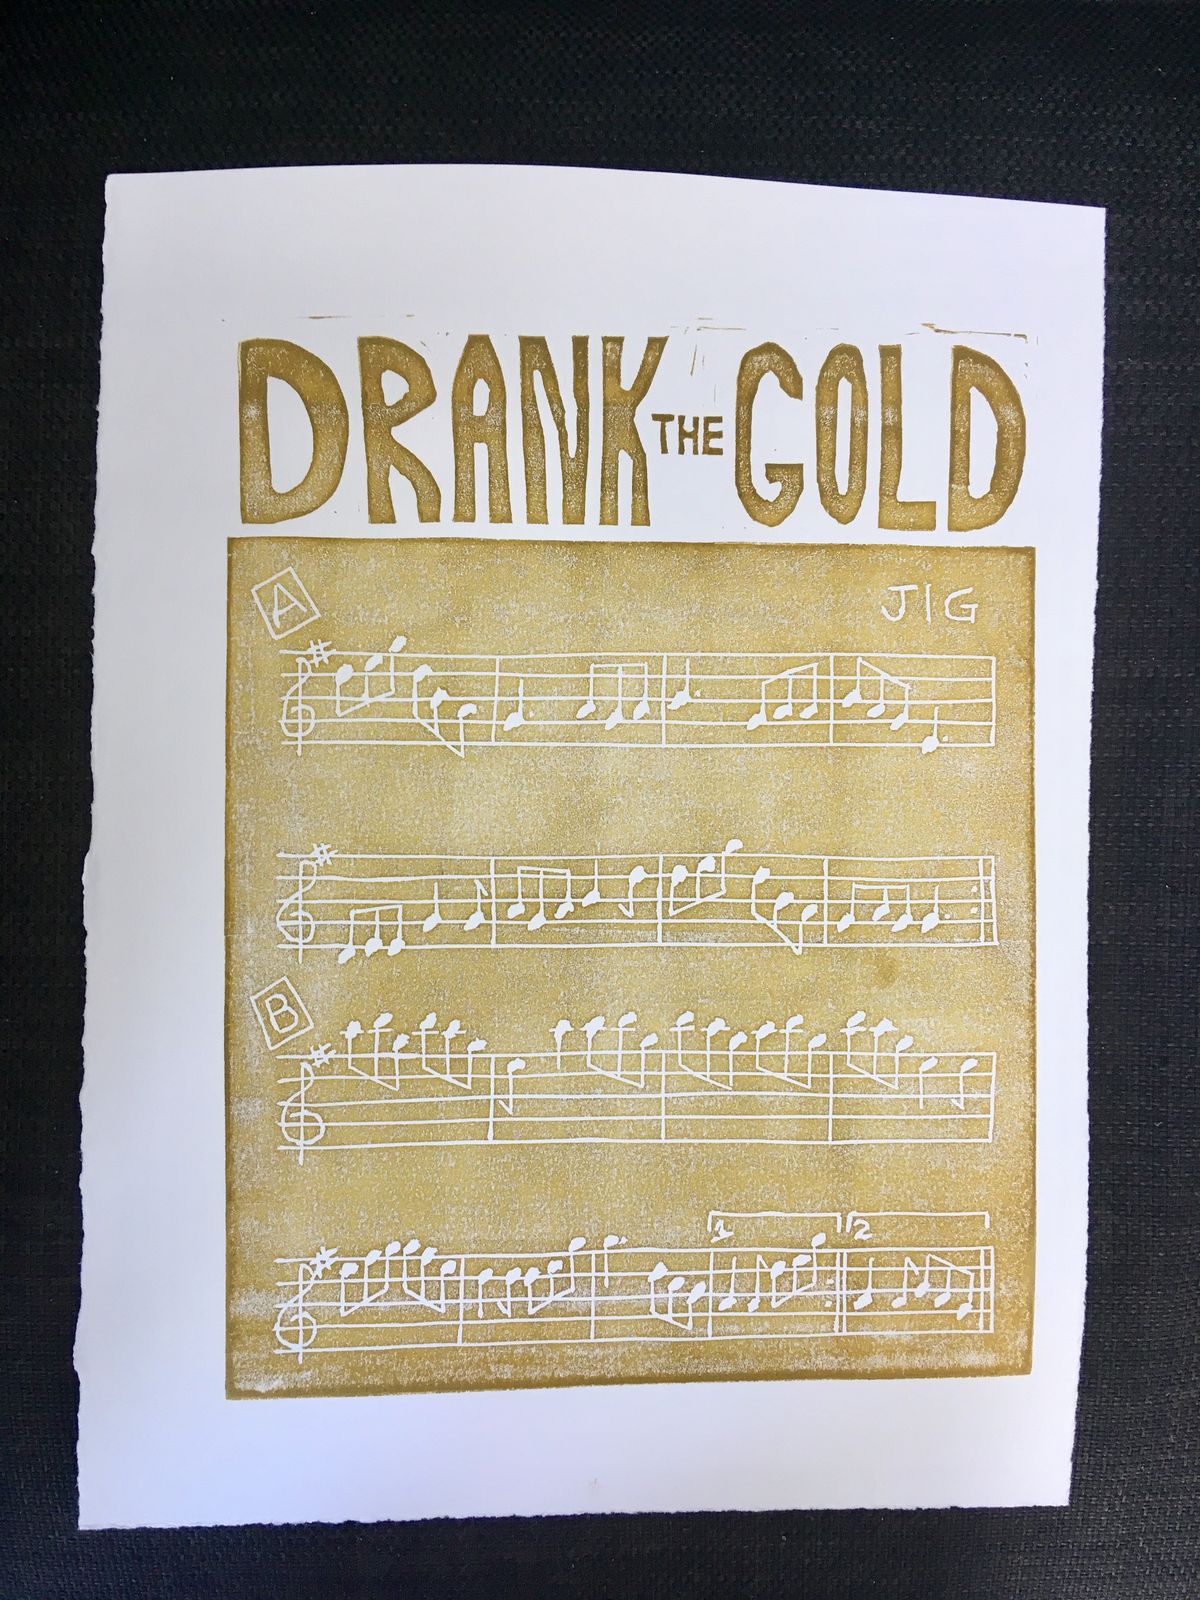 DRANK THE GOLD
A
JIG
B
1 2